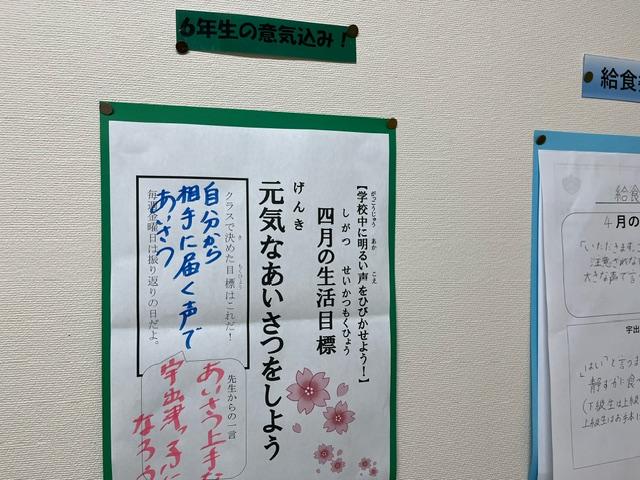 6年生の意気込み!
【学校中に明るい声をひびかせよう!】
がっこうじゅう あか こえ
四月の生活目標
しがつ せいかつもくひょう
元気なあいさつをしよう
げんき
クラスで決めた目標はこれだ!
き もくひょう
自分から
相手に届く声で
あいさつ
毎週金曜日は振り返りの日だよ。
先生からの一言
あいさつ上手な
宇出津っ子に
なろう
給食
給食
4月の
「いただきます
注意されな
大きな声で言
宇出
「はい」と言うま
静かに食
(下級生は上級
上級生はお手本